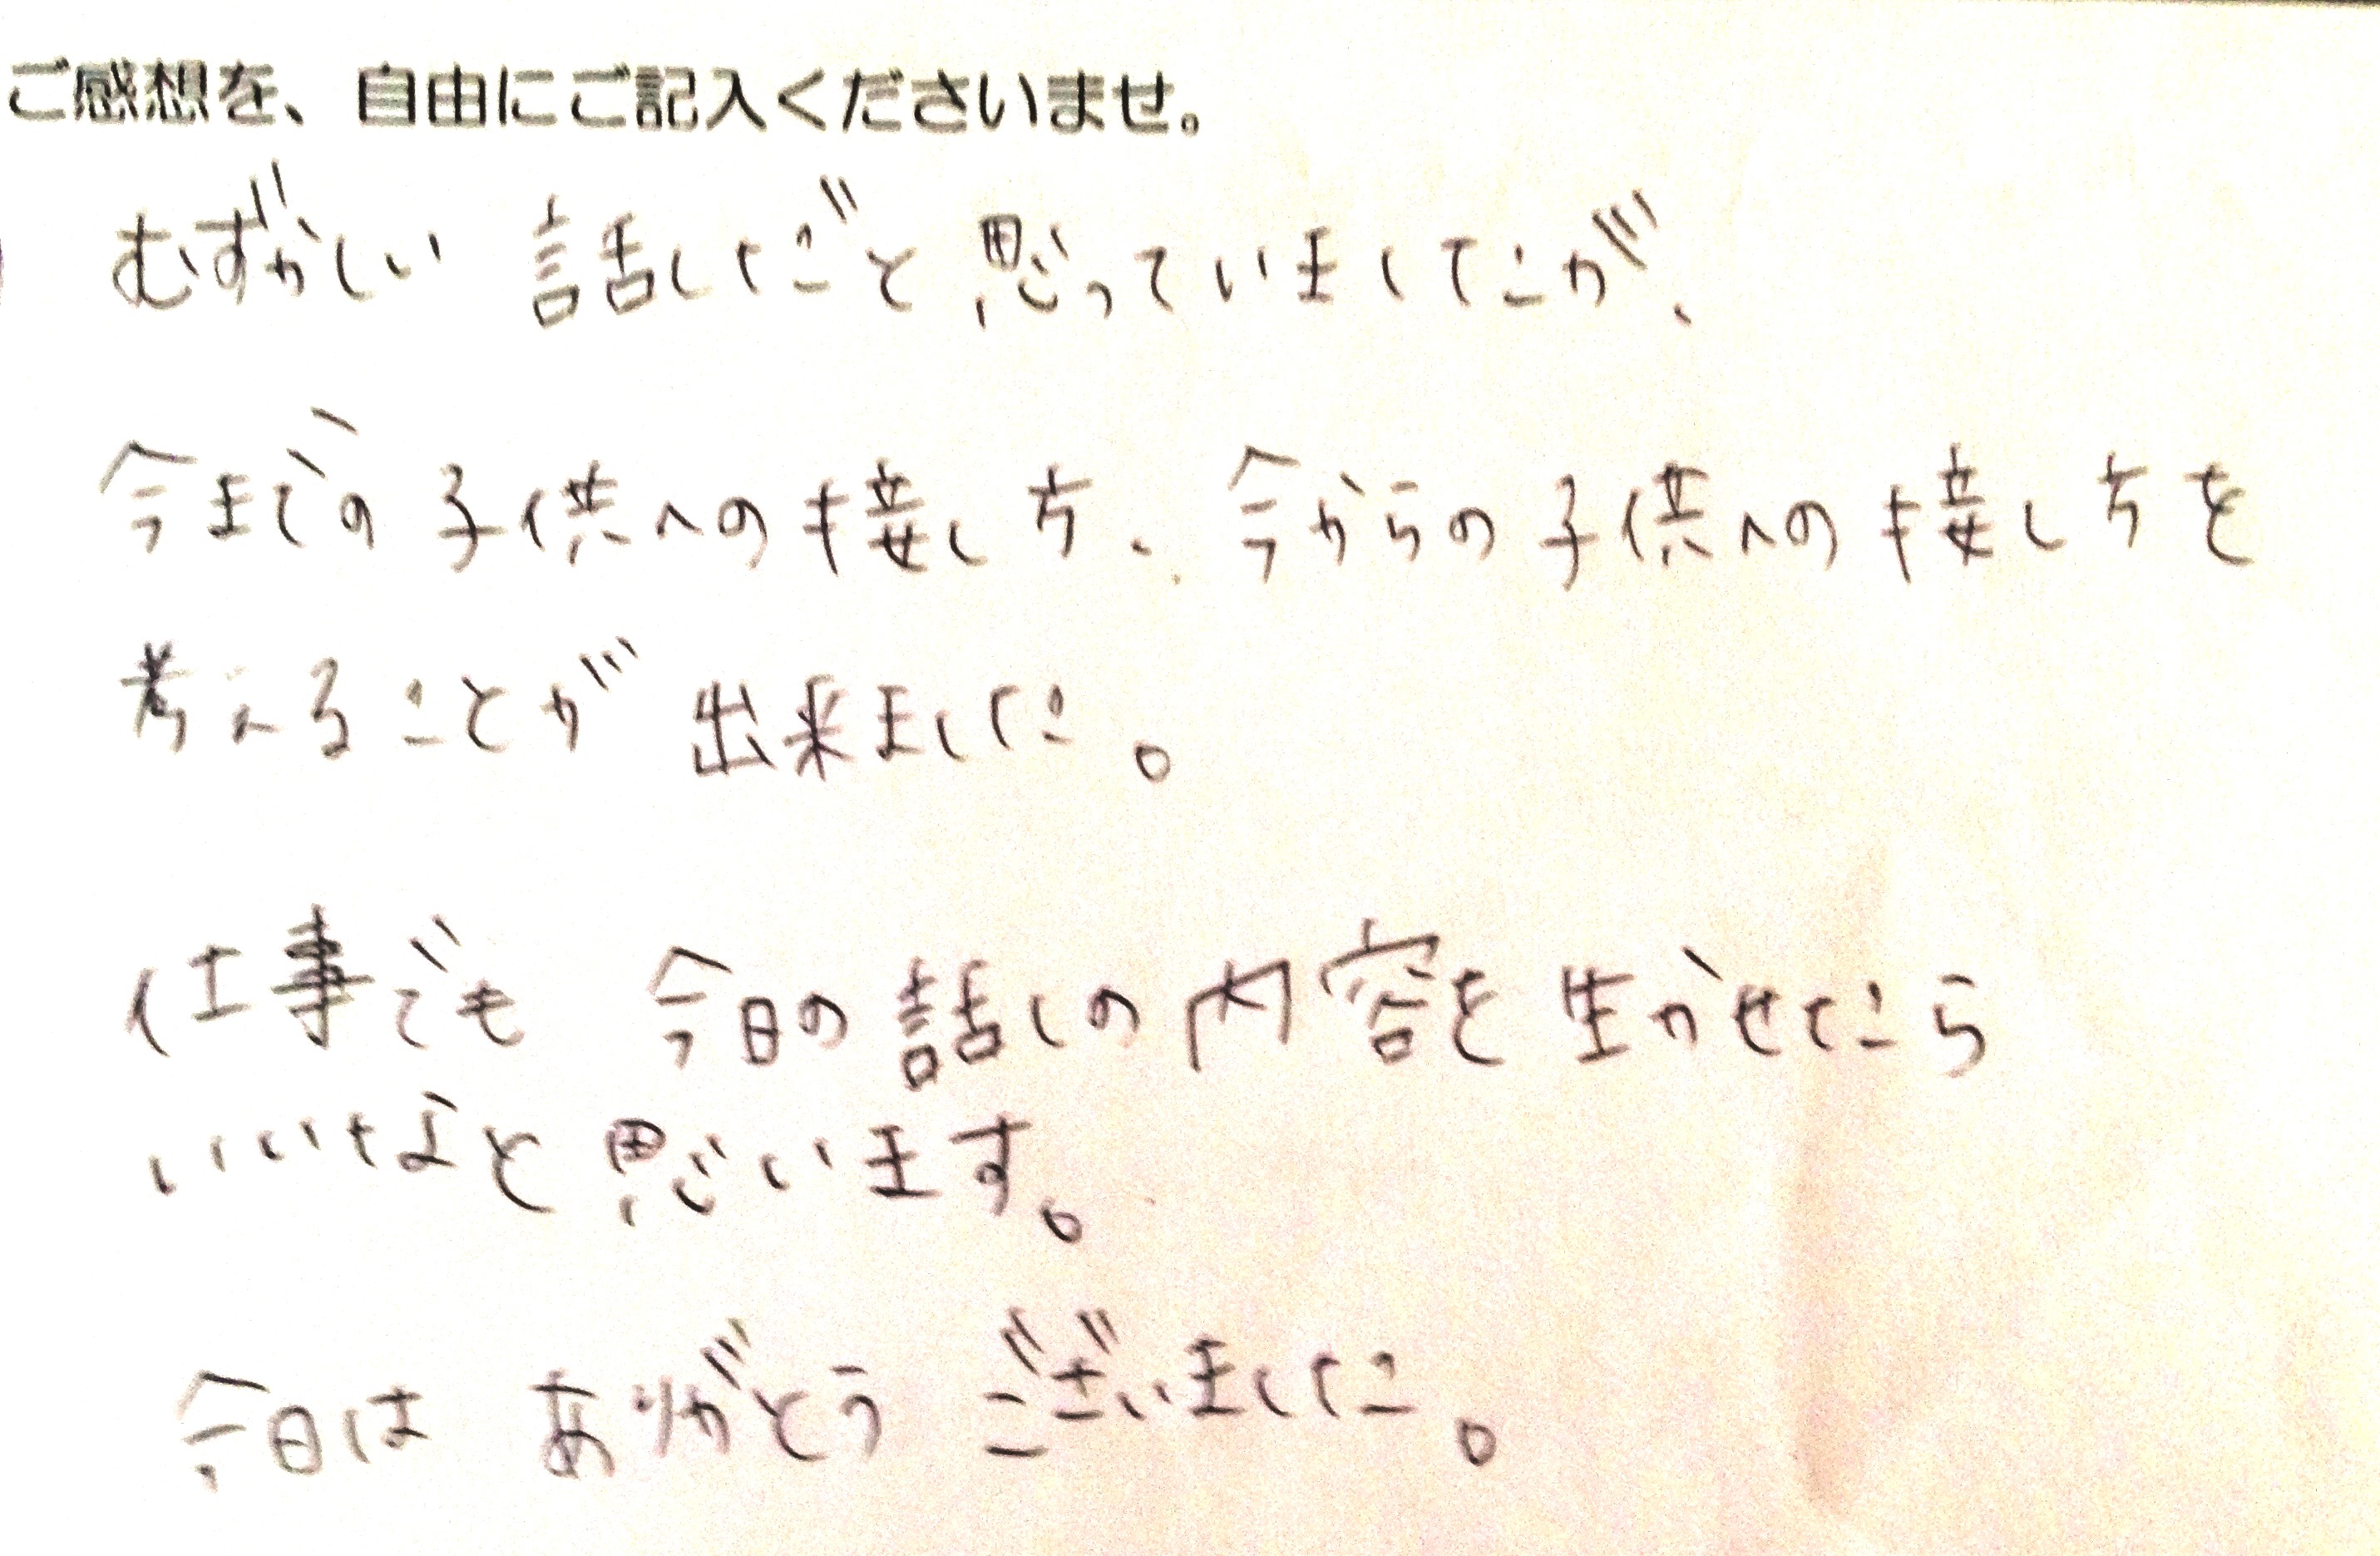 ご感想を、自由にご記入くださいませ。
むずかしい 話しだと思っていましたが、
今までの子供への接し方、今からの子供への接し方を
考えることが出来ました。
仕事でも 今日の話しの内容を生かせたら
いいなと思います。
今日は ありがとう ございました。